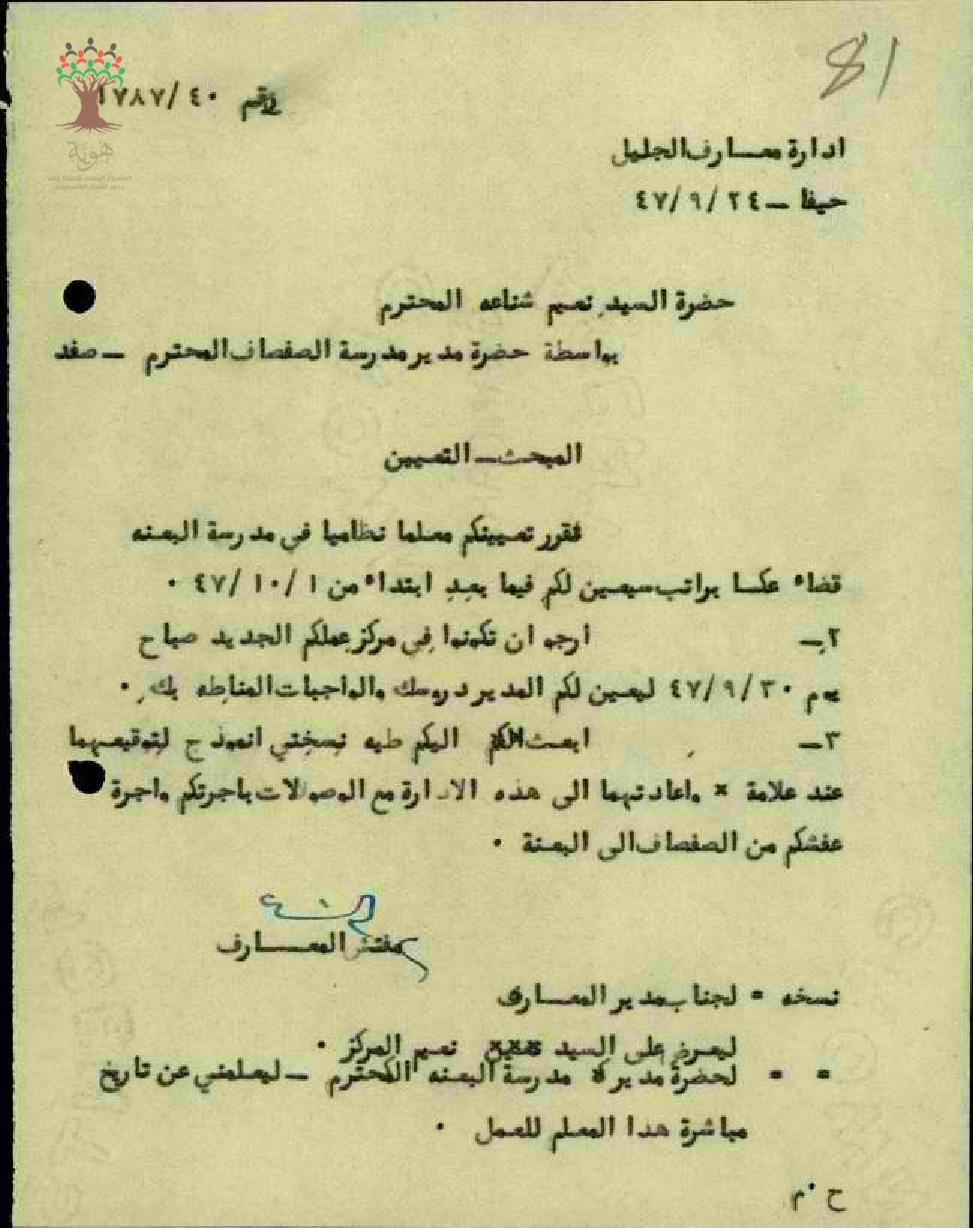 81
رقم ١٧٨٧/٤٠
هوية
ادارة معــارف الجليل
حيفا – ٤٧/٩/٢٤
حضرة السيد نعيم شناعه المحترم
بواسطة حضرة مدير مدرسة الصفصاف المحترم – صفد
المبحث – التعيين
فقرر تعيينكم معلما نظاميا في مدرسة البعنه
قضاء عكا براتب سيعين لكم فيما بعد ابتداء من ٤٧/١٠/١ ٠
٢ – ارجو ان تكونوا في مركز عملكم الجديد صباح
يوم ٤٧/٩/٣٠ ليعين لكم المدير دروسك والواجبات المناطه بك ٠
٣ – ابعث اليكم طيه نسختي انموذج لتوقيعهما
عند علامة × واعادتهما الى هذه الادارة مع الوصولات باجرتكم واجرة
عفشكم من الصفصاف الى البعنة ٠
مفتش المعــــارف
نسخه = لجناب مدير المعارف
ليعرض على السيد نعيم المركز ٠
= = لحضرة مدير مدرسة البعنه المحترم – ليعلمني عن تاريخ
مباشرة هذا المعلم للعمل ٠
ح ٠ م